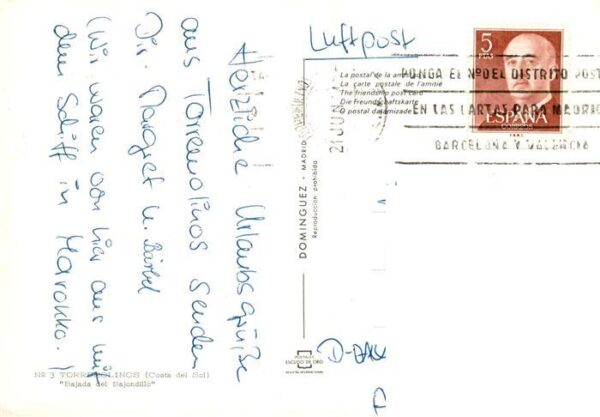 Herzliche Urlaubsgrüße
aus Torremolinos senden
Dir Margret u. Bärbel
(Wir waren von hier aus mit
dem Schiff in Marokko.)
Nº 3 TORREMOLINOS (Costa del Sol)
"Bajada del Bajondillo"
Luftpost
La postal de la amistad
La carte postale de l'amitié
The friendship post card
Die Freundschaftskarte
O postal da amizade
DOMINGUEZ - MADRID
Reproducción prohibida
POSTALES
ESCUDO DE ORO
21 JUN
5
PTAS
ESPAÑA
CORREOS
PONGA EL Nº DEL DISTRITO POST
EN LAS CARTAS PARA MADRID
BARCELONA Y VALENCIA